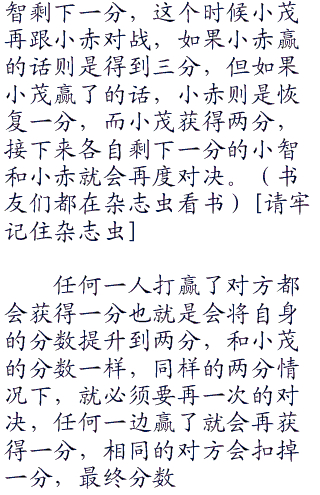 智剩下一分，这个时候小茂
再跟小赤对战，如果小赤赢
的话则是得到三分，但如果
小茂赢了的话，小赤则是恢
复一分，而小茂获得两分，
接下来各自剩下一分的小智
和小赤就会再度对决。（书
友们都在杂志虫看书）[请牢
记住杂志虫]
任何一人打赢了对方都
会获得一分也就是会将自身
的分数提升到两分，和小茂
的分数一样，同样的两分情
况下，就必须要再一次的对
决，任何一边赢了就会再获
得一分，相同的对方会扣掉
一分，最终分数